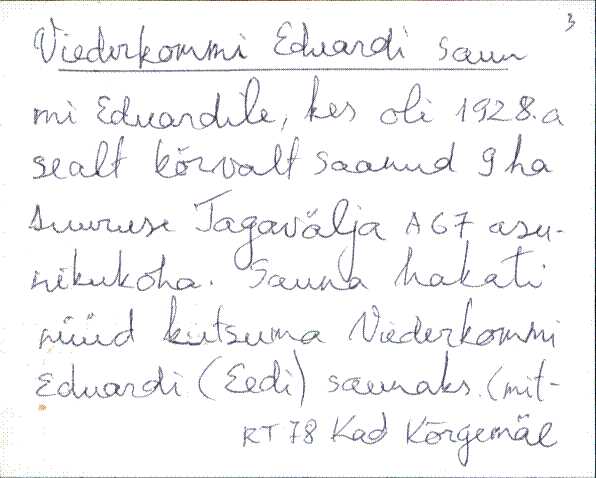 3
Viederkommi Eduardi saun
mi Eduardile, kes oli 1928.a
sealt kõrvalt saanud 9 ha
suuruse Tagavälja A67 asu-
nikukoha. Sauna hakati
nüüd kutsuma Viederkommi
Eduardi (Eedi) saunaks. (mit-
RT 78 Kad Kõrgemäe